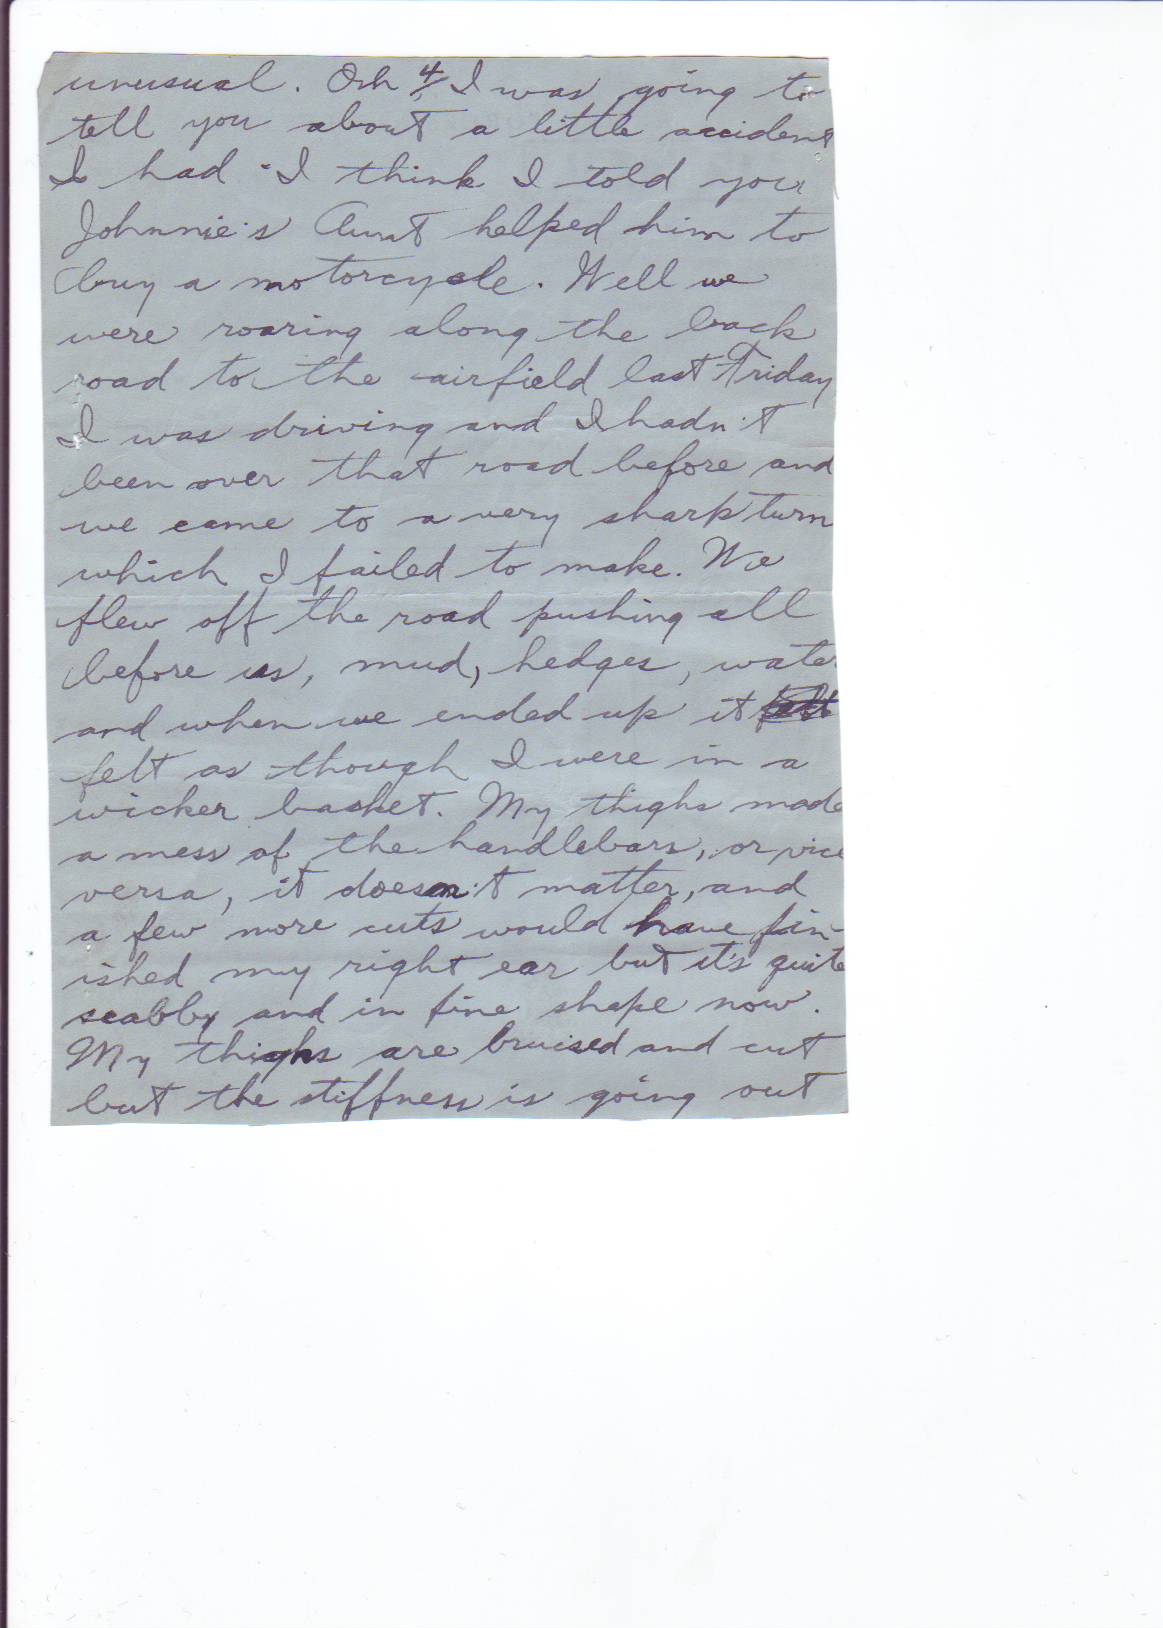 unusual. Ooh 4/ I was going to
tell you about a little accident
I had - I think I told you
Johnnie's Aunt helped him to
buy a motorcycle. Well we
were roaring along the back
road to the airfield last Friday
I was driving and I hadn't
been over that road before and
we came to a very sharp turn
which I failed to make. We
flew off the road pushing all
before us, mud, hedges, water
and when we ended up it
felt as though I were in a
wicker basket. My thighs made
a mess of the handlebars, or vice
versa, it doesn't matter, and
a few more cuts would have fin-
ished my right ear but it's quite
scabby and in fine shape now.
My thighs are bruised and cut
but the stiffness is going out